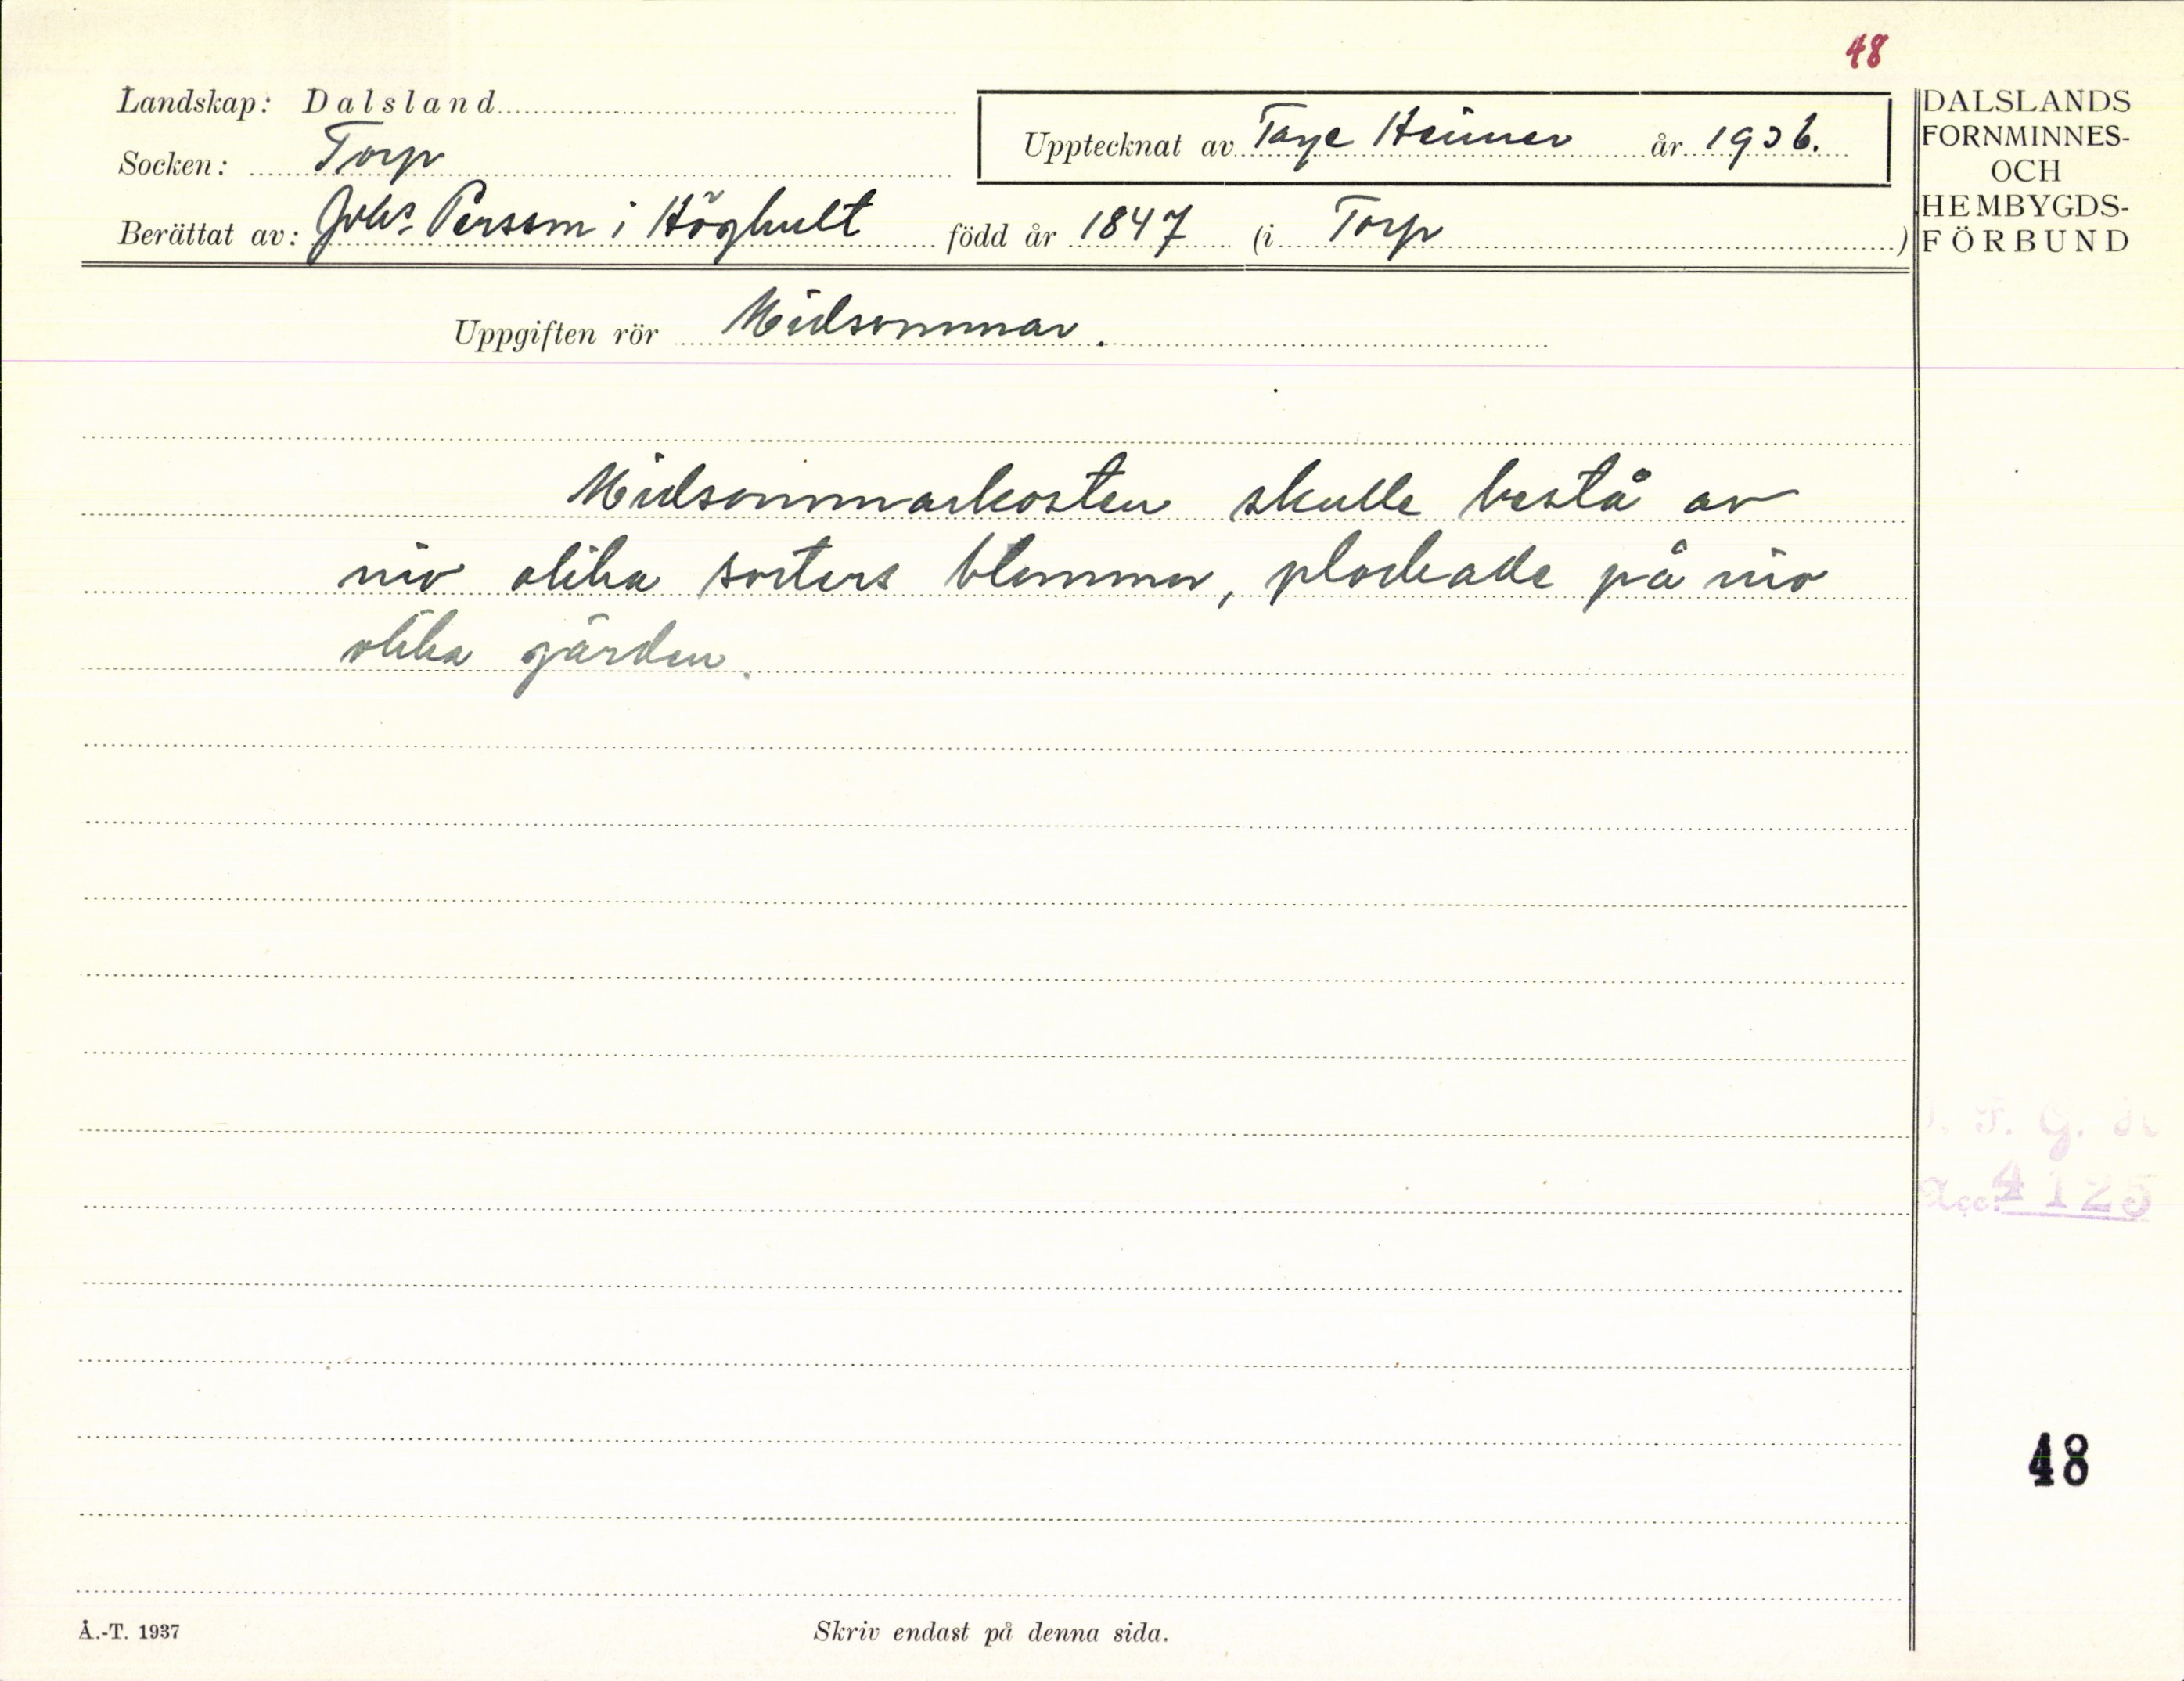 48
Landskap: Dalsland
Socken: Torp
Upptecknat av Tage Heimer år 1936.
Berättat av: Johs. Persson i Höghult född år 1847 (i Torp)
DALSLANDS
FORNMINNES-
OCH
HEMBYGDS-
FÖRBUND
Uppgiften rör Midsommar.
Midsommarkosten skulle bestå av
nio olika sorters blommor, plockade på nio
olika gärden.
Acc. 4125
48
Å.-T. 1937
Skriv endast på denna sida.